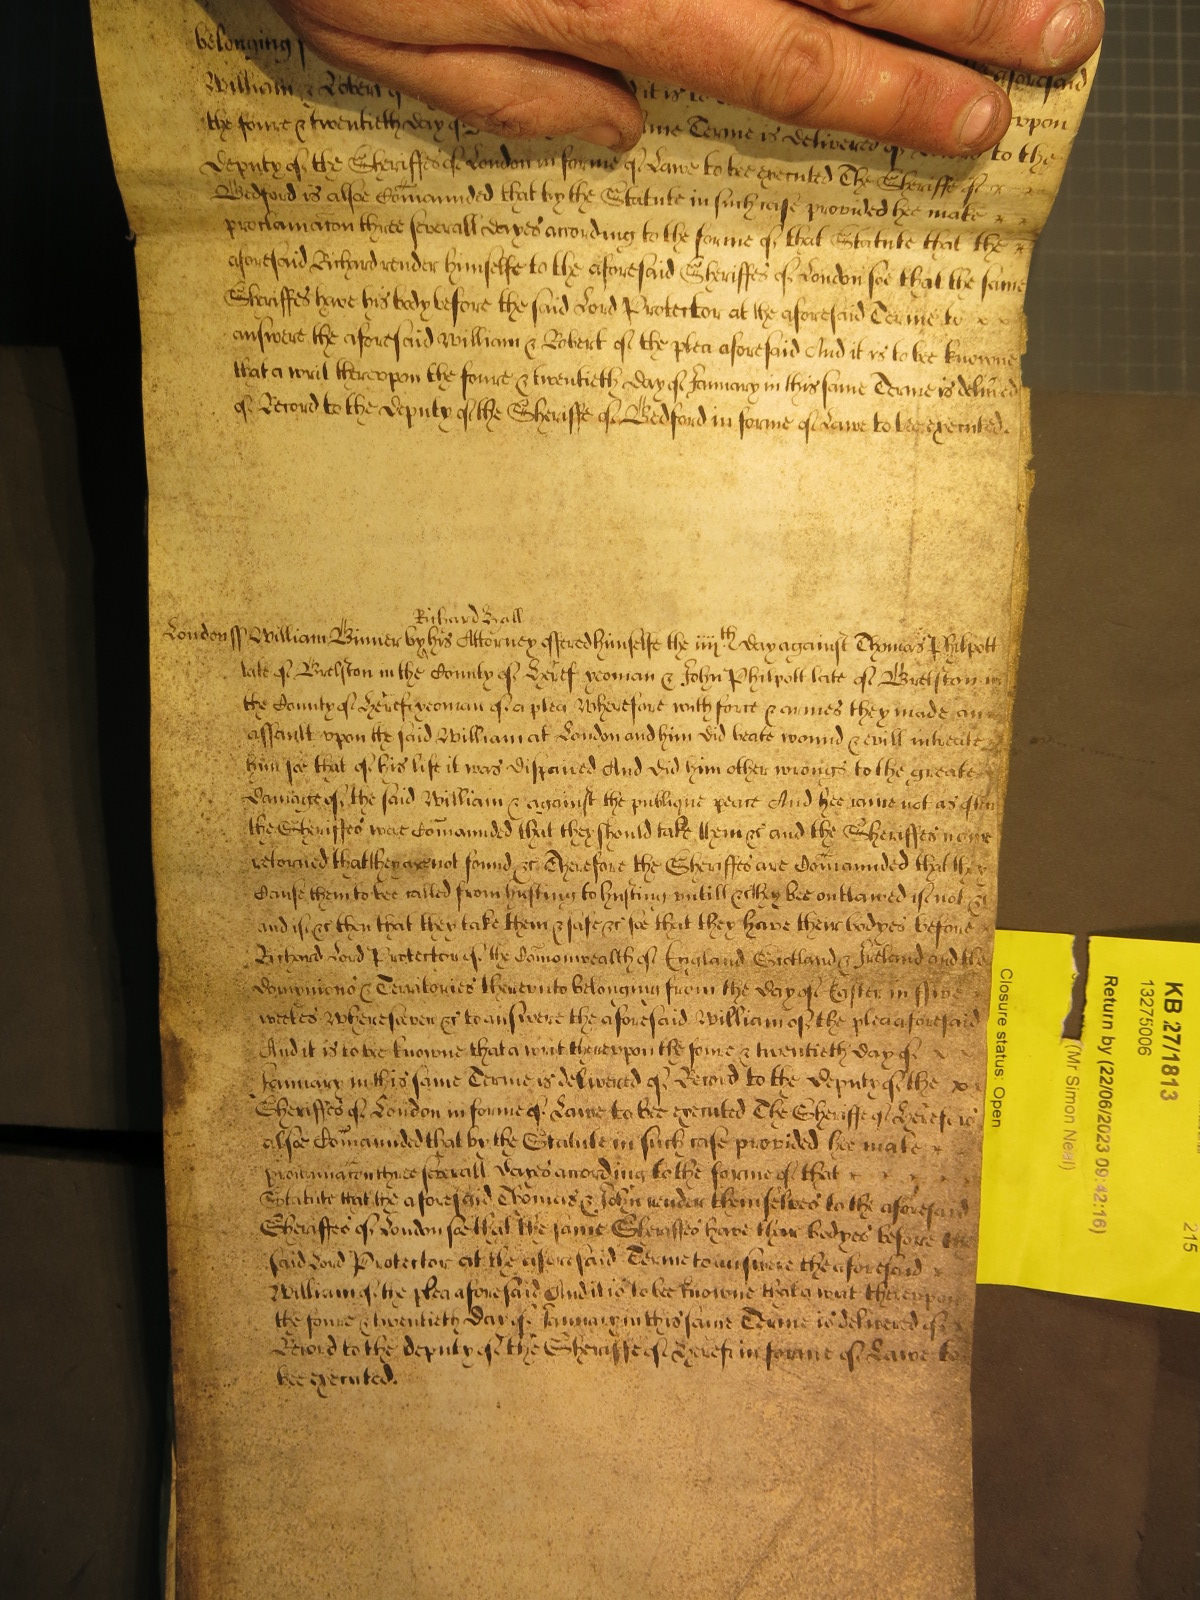 belonging
aforesaid
William & Robert it is to
upon
the foure & twentieth day of same Terme is delivered of to the
deputy of the Sheriffes of London in forme of Lawe to bee executed The Sheriffe of
Bedford is alsoe Comaunded that by the Statute in such case provided hee make
proclamacon three severall dayes according to the forme of that Statute that the
aforesaid Richard render himselfe to the aforesaid Sheriffes of London soe that the same
Sheriffes have his body before the said Lord Protector at the aforesaid Terme to
answere the aforesaid William & Robert of the plea aforesaid And it is to bee knowne
that a writ thereupon the foure & twentieth day of January in this same Terme is delived
of Record to the deputy of the Sheriffe of Bedford in forme of Lawe to bee executed.
Richard Hall
London ss William Binner by his Attorney offered himselfe the iiij th day against Thomas Philpott
late of Brelston in the County of Heref yeoman & John Philpott late of Brelston in
the County of Heref yeoman of a plea Wherefore with force & armes they made an
assault upon the said William at London and him did beate wound & evill intreate
him soe that of his life it was dispaired And did him other wrongs to the greate
damage of the said William & against the publique peace And hee came not as often
the Sheriffes were Comaunded that they should take them &c and the Sheriffes nowe
retorned that they are not found &c Therefore the Sheriffes are Comaunded that they
Cause them to bee called from husting to husting untill &c they bee outlawed if not &c
and if &c then that they take them & safe &c soe that they have their bodyes before
Richard Lord Protector of the Comonwealth of England Scotland & Ireland and the
dominions & Territories thereunto belonging from the day of Easter in five
weekes Wheresoever &c to answere the aforesaid William of the plea aforesaid
And it is to bee knowne that a writ thereupon the foure & twentieth day of
January in this same Terme is delivered of Record to the deputy of the
Sheriffes of London in forme of Lawe to bee executed The Sheriffe of Heref is
alsoe Comaunded that by the Statute in such case provided hee make
proclamacon three severall dayes according to the forme of that
Statute that the aforesaid Thomas & John render themselves to the aforesaid
Sheriffes of London soe that the same Sheriffes have their bodyes before the
said Lord Protector at the aforesaid Terme to answere the aforesaid
William of the plea aforesaid And it is to bee knowne that a writ thereupon
the foure & twentieth day of January in this same Terme is delivered of
Record to the deputy of the Sheriffe of Heref in forme of Lawe to
bee executed.
215
KB 27/1813
13275006
Return by (22/06/2023 09:42:16)
(Mr Simon Neal)
Closure status: Open